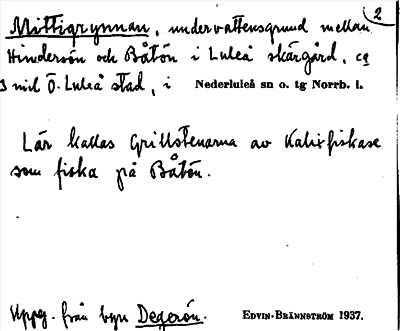 2
Mittigrynnan, undervattensgrund mellan
Hindersön och Båtön i Luleå skärgård, ca
3 mil Ö. Luleå stad, i Nederluleå sn o. tg Norrb. l.
Lär kallas Grillstenarna av Kalixfiskare
som fiska på Båtön.
Uppg. från byn Degerön. EDVIN BRÄNNSTRÖM 1937.